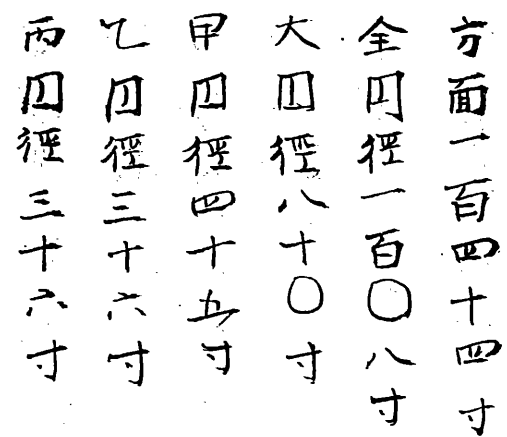 方面一百四十四寸
全円径一百〇八寸
大円径八十〇寸
甲円径四十五寸
乙円径三十六寸
丙円径三十六寸